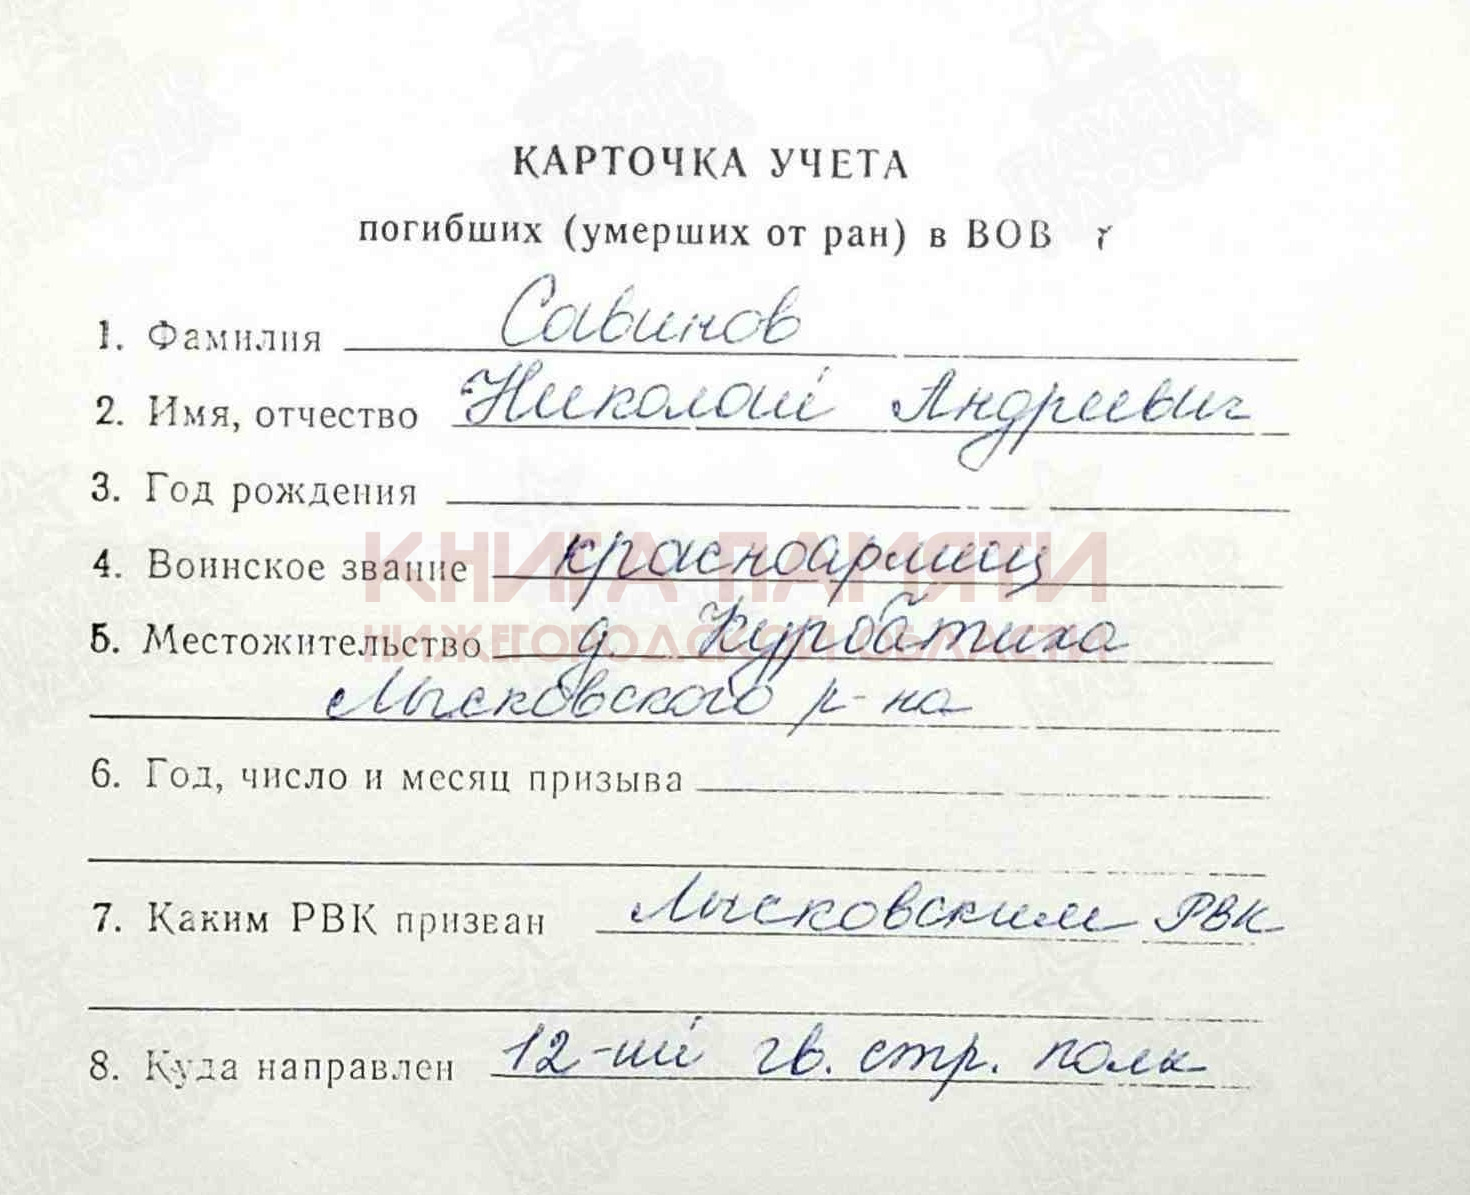 КАРТОЧКА УЧЕТА
погибших (умерших от ран) в ВОВ г
1. Фамилия Савинов
2. Имя, отчество Николай Андреевич
3. Год рождения
4. Воинское звание красноармеец
КНИГА ПАМЯТИ
5. Местожительство д. Курбатиха
НИЖЕГОРОДСКОЙ ОБЛАСТИ
Лысковского р-на
6. Год, число и месяц призыва
7. Каким РВК призван Лысковским РВК
8. Куда направлен 12-ый гв. стр. полк